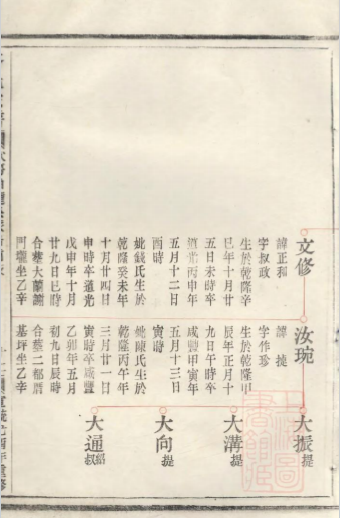 文修
諱正和
字叔政
生於乾隆辛
巳年十月廿
五日未時卒
道光丙申年
五月十二日
酉時
妣錢氏生於
乾隆癸未年
十月廿四日
申時卒道光
戊申年十月
廿九日巳時
合葬大蘭謝
門壠坐乙辛
汝琬
諱 捷
字作珍
生於乾隆甲
辰年正月十
九日午時卒
咸豐甲寅年
五月十三日
寅時
妣陳氏生於
乾隆丙午年
三月廿一日
寅時卒咸豐
乙卯年五月
初九日辰時
合葬二都厝
基坪坐乙辛
大振提
大溝提
大向提
大通紹叔